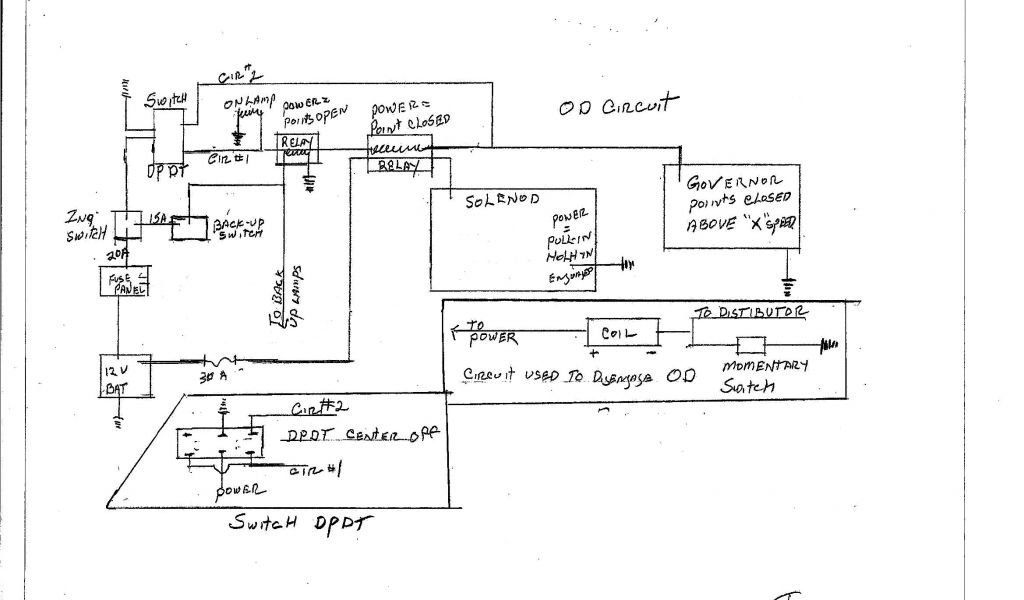 CIR #2
OD CIRCUIT
SWITCH
ON LAMP
POWER =
POINTS OPEN
POWER =
POINT CLOSED
RELAY
RELAY
CIR #1
DPDT
GOVERNOR
POINTS CLOSED
ABOVE "X" SPEED
SOLENOD
POWER
=
PULL-IN
HOLD IN
ENGAGED
INQ
SWITCH
15A
BACK-UP
SWITCH
20A
FUSE
PANEL
TO BACK
UP LAMPS
12 V
BAT
30 A
TO
POWER
COIL
+ -
TO DISTIBUTOR
MOMENTARY
SWITCH
CIRCUIT USED TO DISENGAGE OD
CIR #2
DPDT CENTER OFF
CIR #1
POWER
SWITCH DPDT